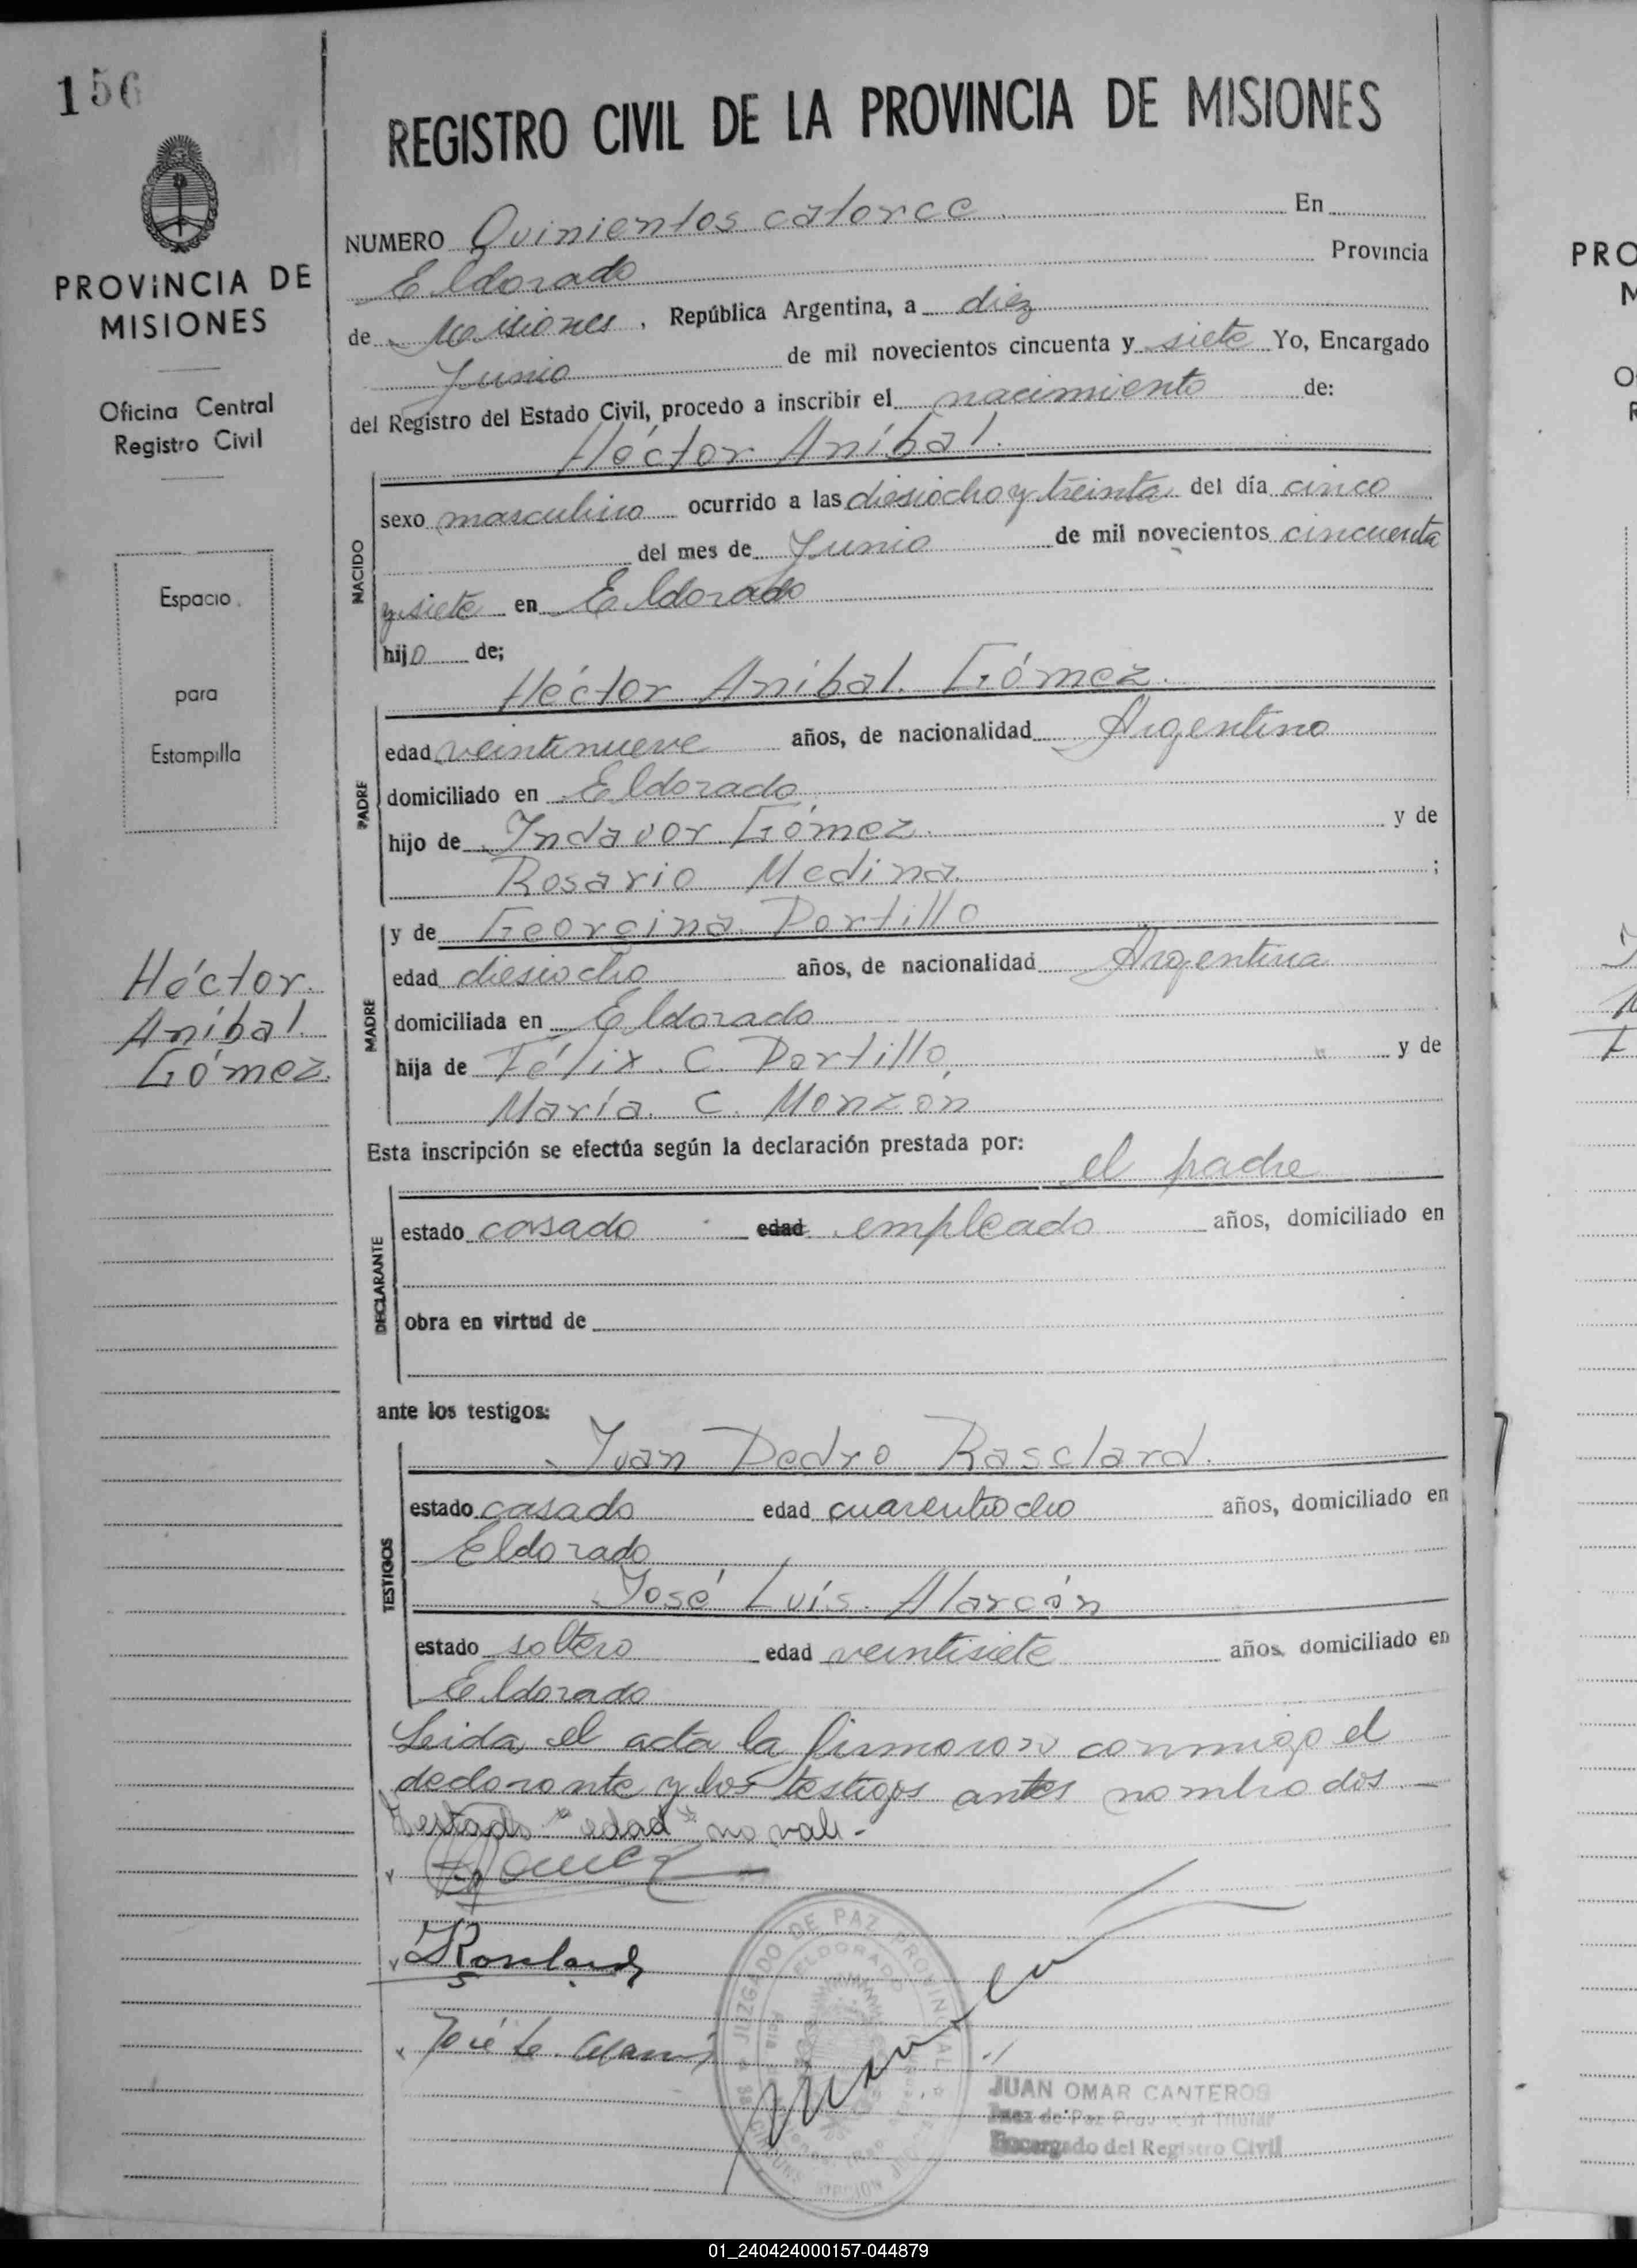 156
PROVINCIA DE
MISIONES
Oficina Central
Registro Civil
Espacio
para
Estampilla
Héctor
Aníbal
Gómez.
REGISTRO CIVIL DE LA PROVINCIA DE MISIONES
NUMERO Quinientos catorce En
Eldorado Provincia
de Misiones, República Argentina, a diez
Junio de mil novecientos cincuenta y siete Yo, Encargado
del Registro del Estado Civil, procedo a inscribir el nacimiento de:
Héctor Aníbal.
NACIDO
sexo masculino ocurrido a las diesiocho y treinta del día cinco
del mes de Junio de mil novecientos cincuenta
y siete en Eldorado
hijo de;
Héctor Aníbal. Gómez.
PADRE
edad veintinueve años, de nacionalidad Argentino
domiciliado en Eldorado,
hijo de Indavor Gómez. y de
Rosario Medina. ;
y de Georgina Portillo
MADRE
edad diesiocho años, de nacionalidad Argentina
domiciliada en Eldorado
hija de Félix. C. Portillo, y de
María. C. Monzón
Esta inscripción se efectúa según la declaración prestada por:
el padre
DECLARANTE
estado casado edad empleado años, domiciliado en
obra en virtud de
ante los testigos:
Juan Pedro Rasclard.
TESTIGOS
estado casado edad cuarentiocho años, domiciliado en
Eldorado
José Luís. Alarcón
estado soltero edad veintisiete años, domiciliado en
Eldorado
Leida el acta la firmaron conmigo el
declarante y los testigos antes nombrados.—
Testado "edad" no vale.-
José L. Alarcón
JUZGADO DE PAZ PROVINCIAL
ELDORADO
JUAN OMAR CANTEROS
Juez de Paz Provincial Titular
Encargado del Registro Civil
PRO
01_240424000157-044879